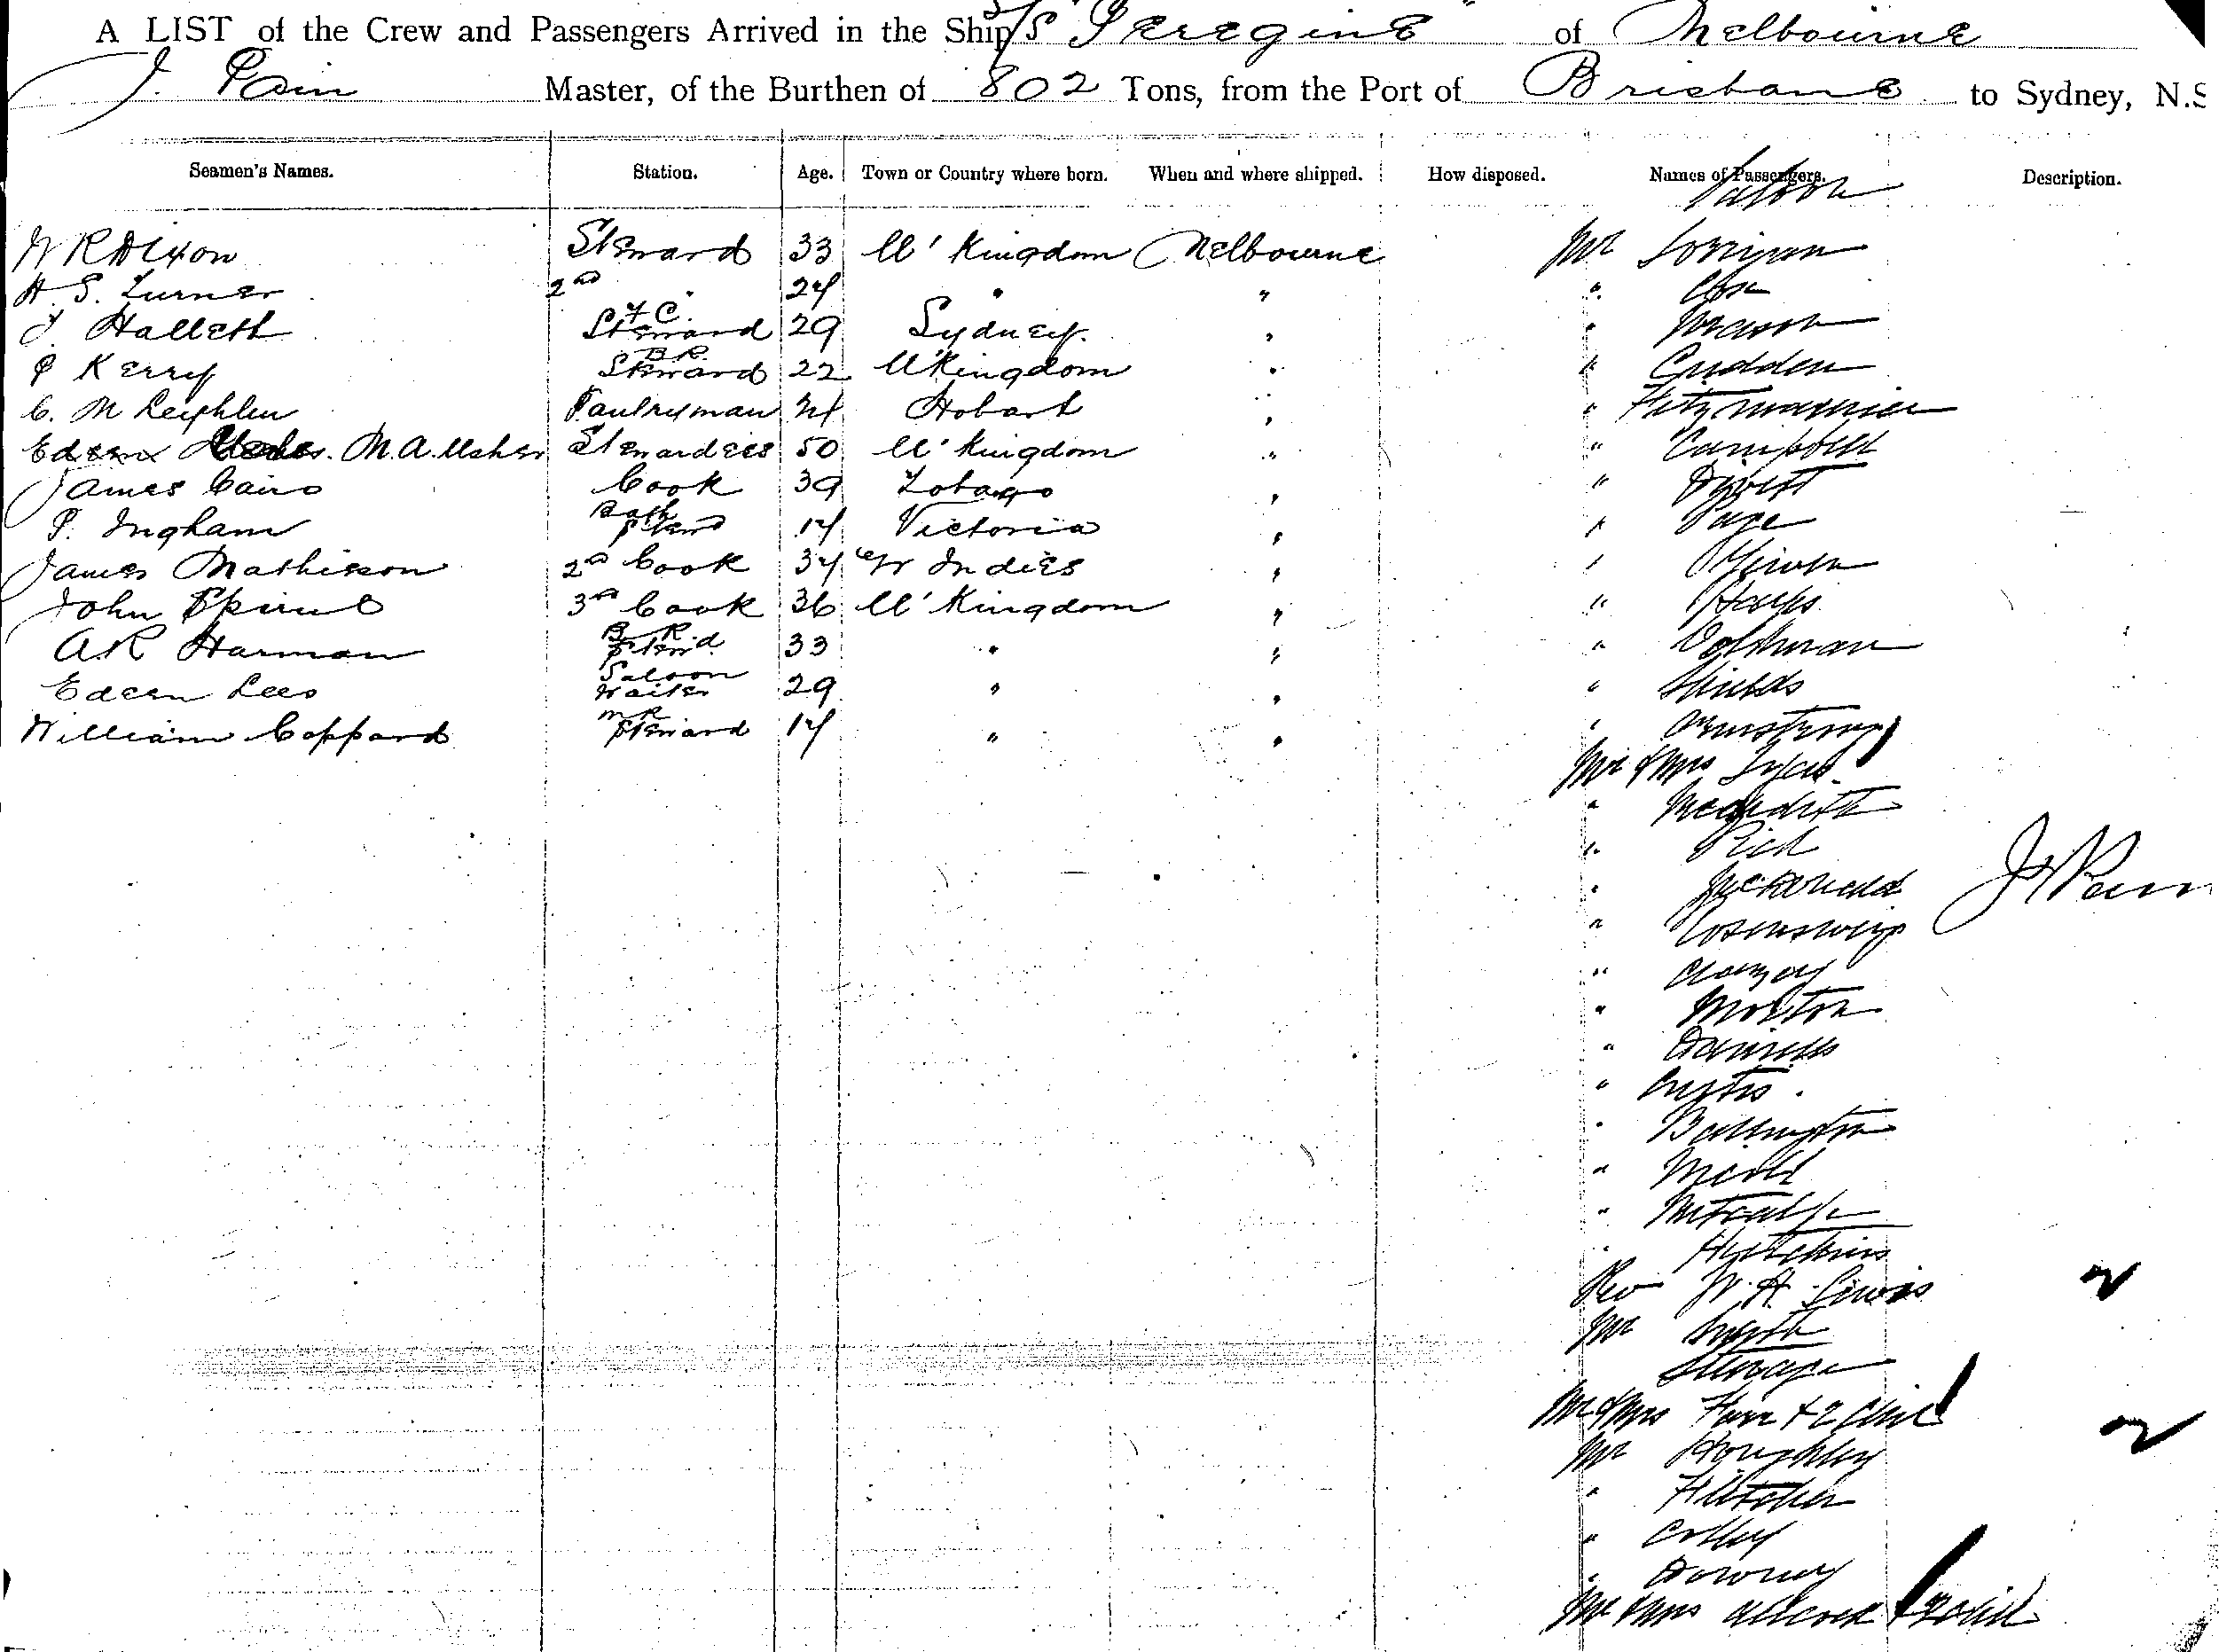 A LIST of the Crew and Passengers Arrived in the Ship S/S "Peregine" of Melbourne
J. Pain Master, of the Burthen of 802 Tons, from the Port of Brisbane to Sydney, N.S
Seamen's Names. Station. Age. Town or Country where born. When and where shipped. How disposed. Names of Passengers. Description.
Saloon
W R Dixon Steward 33 U' Kingdom Melbourne Mr
H. S. Turner 2nd " 24 " "
Halleth F.C. Steward 29 Sydney " " Mason
P Kerry B.R. Steward 22 U'Kingdom " " Cudden
C. M Pantryman 24 Hobart " " Fitzmaurice
M. A. Usher Stewardess 50 U' Kingdom " " Campbell
James Cairo Cook 39 Tobago " "
P. Ingham Bath Stewd 14 Victoria " " Page
James Mathieson 2nd Cook 34 W Indies " "
John 3rd Cook 36 U' Kingdom " " Hayes
A.R Harman B R Stewd 33 " " "
Edean Lees Saloon Waiter 29 " " " Shields
William Coppard M R Steward 14 " " " Armstrong
Mr & Mrs
" Meredith
"
" McDonald
J Pain
" Rosensweig
"
" Morton
" Daniells
" Curtis
"
"
" Metcalfe
" Hutchins
Rev W. A. Lewis
Mr Smith
Steerage
Mr & Mrs + 2 Child
Mr Houghley
" Fletcher
" Colley
" Downey
Mr & Mrs Allcock + 2 Child